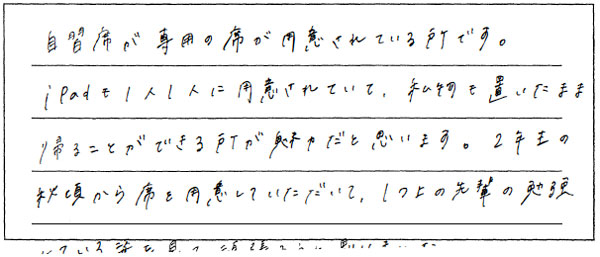 自習席が専用の席が用意されている所です。
iPadも1人1人に用意されていて、私物も置いたまま
帰ることができる所が魅力だと思います。2年生の
秋頃から席を用意していただいて、1つ上の先輩の勉強
している姿を見て頑張ろうと思いました